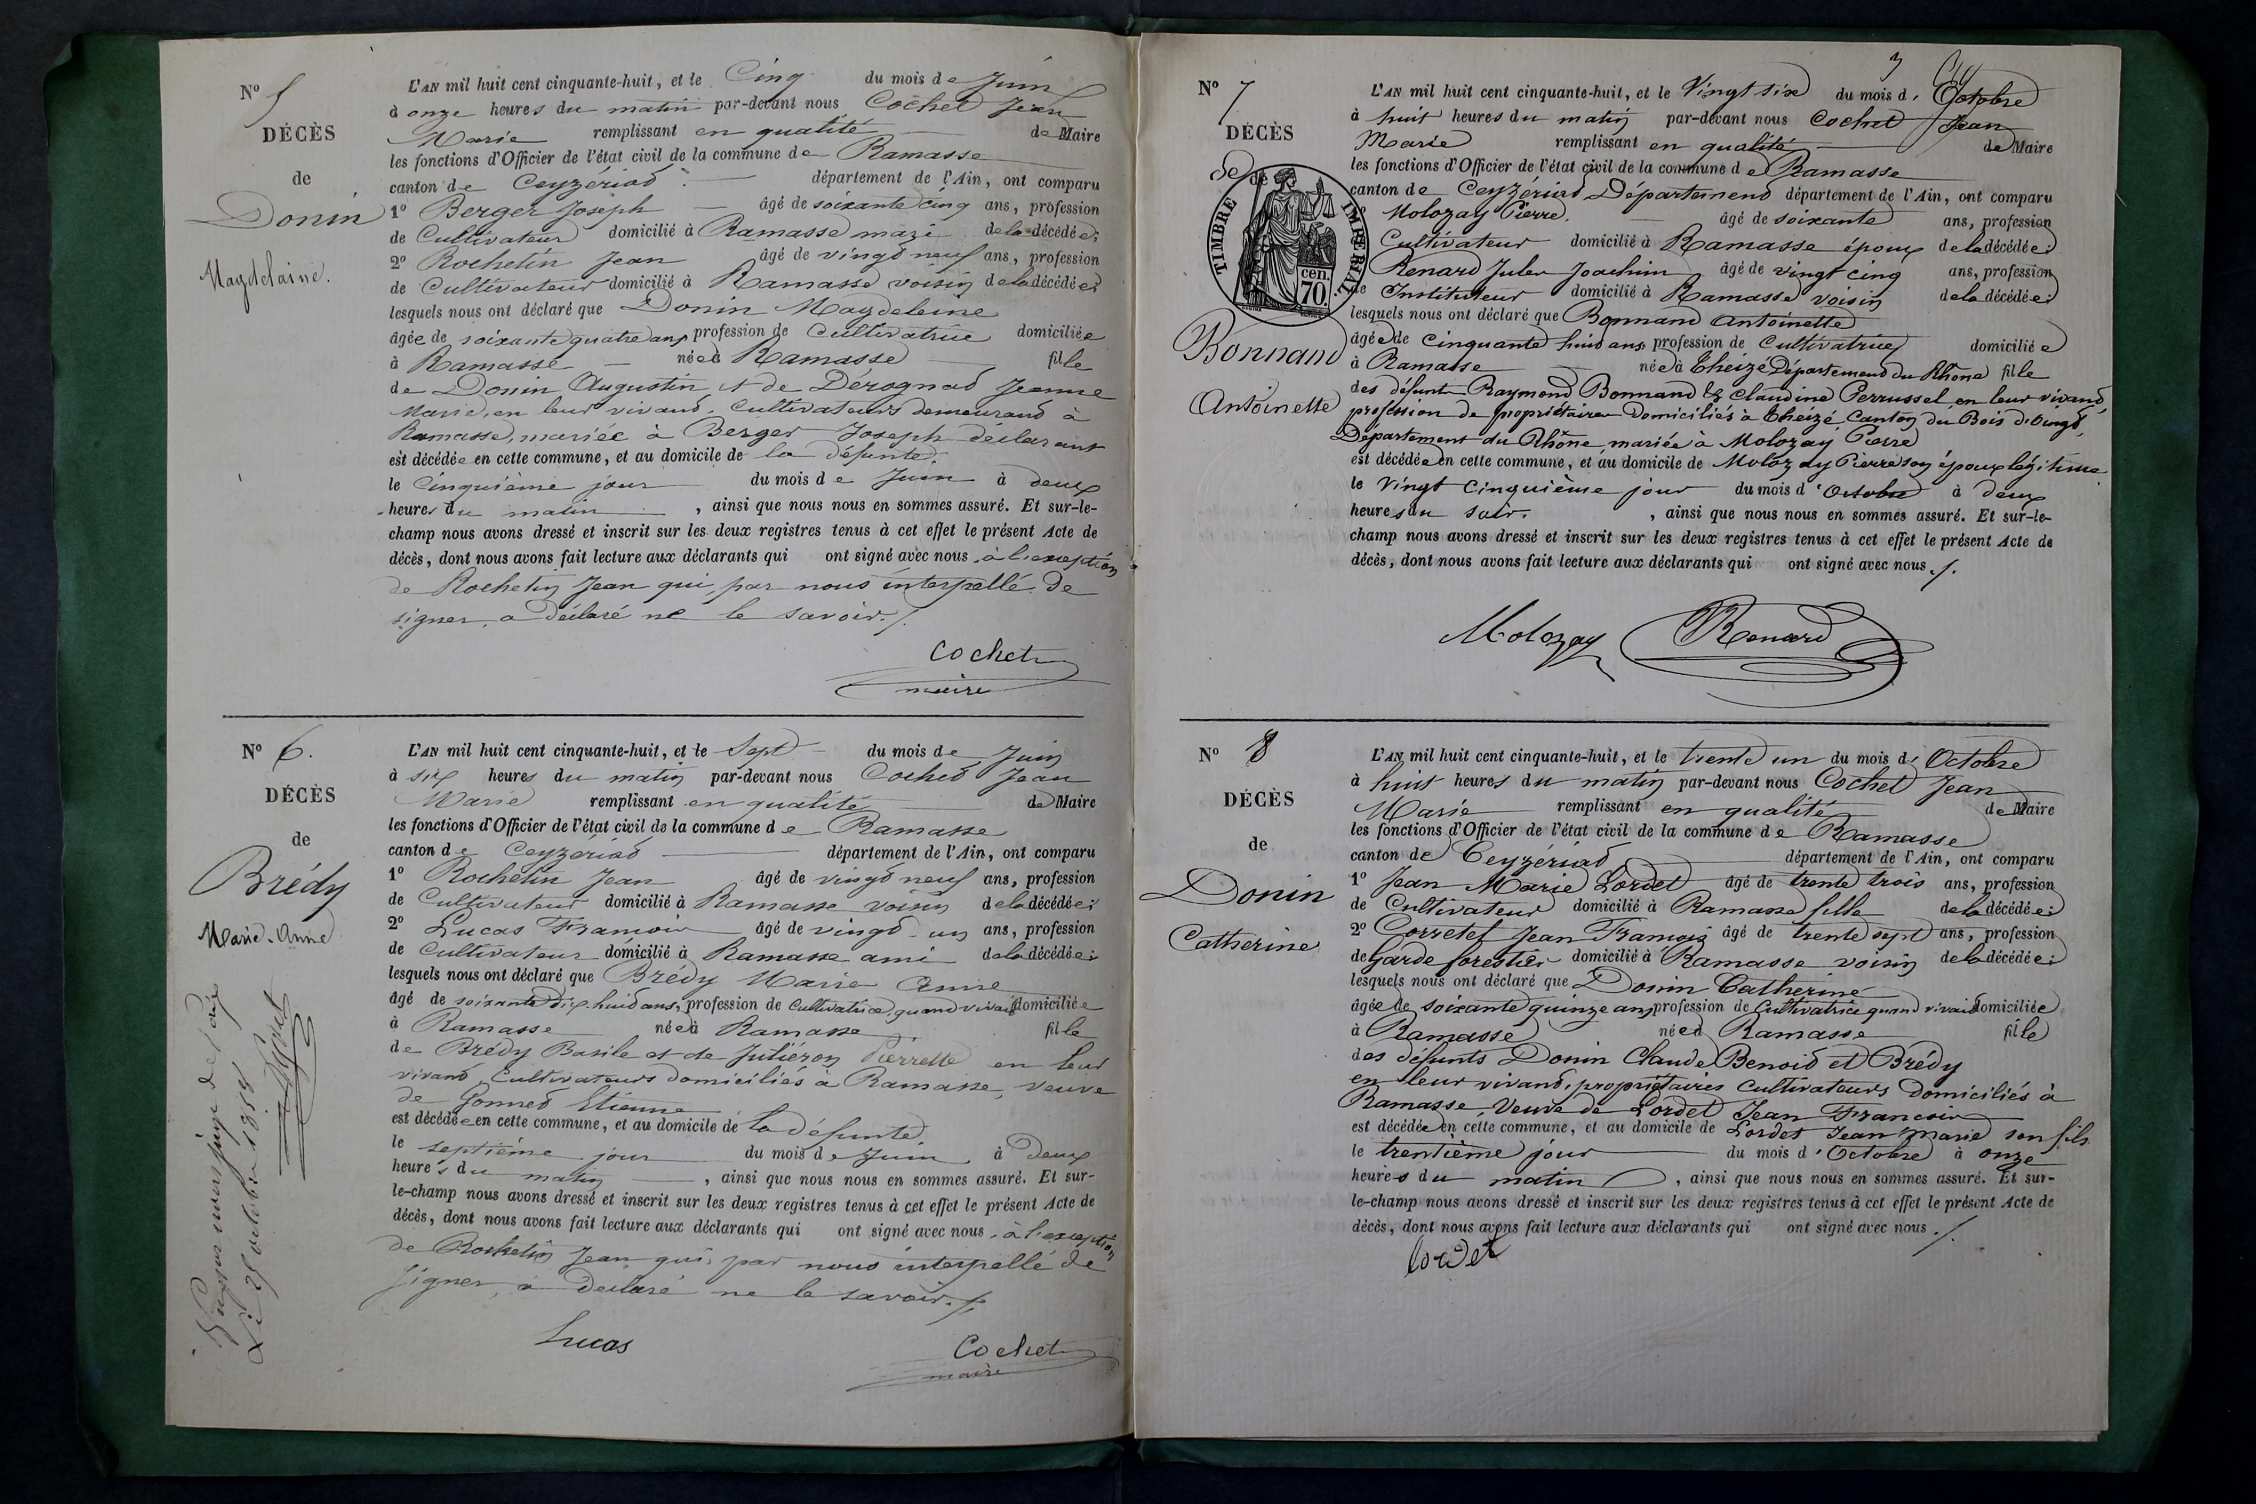 No 5
DÉCÈS
de
Donin
Magdelaine.
L'AN mil huit cent cinquante-huit, et le Cinq du mois de Juin
à onze heures du matin par-devant nous Cochet Jean
Marie remplissant en qualité de Maire
les fonctions d'Officier de l'état civil de la commune de Ramasse
canton de Ceyzériat département de l'Ain, ont comparu
1o Berger Joseph âgé de soixante cinq ans, profession
de Cultivateur domicilié à Ramasse mari de la décédée;
2o Rochetin Jean âgé de vingt neuf ans, profession
de Cultivateur domicilié à Ramasse voisin de la décédée;
lesquels nous ont déclaré que Donin Magdeleine
âgée de soixante quatre ans profession de Cultivatrice domiciliée
à Ramasse née à Ramasse fille
de Donin Augustin et de Dérognat Jeanne
Marie, en leur vivant, cultivateurs demeurant à
Ramasse, mariée à Berger Joseph déclarant
est décédée en cette commune, et au domicile de la défunte
le Cinquième jour du mois de Juin à deux
heures du matin, ainsi que nous nous en sommes assuré. Et sur-le-
champ nous avons dressé et inscrit sur les deux registres tenus à cet effet le présent Acte de
décès, dont nous avons fait lecture aux déclarants qui ont signé avec nous, à l'exception
de Rochetin Jean qui, par nous interpellé de
signer, a déclaré ne le savoir./.
Cochet
maire
No 6.
DÉCÈS
de
Brédy
Marie-Anne
L'AN mil huit cent cinquante-huit, et le Sept du mois de Juin
à six heures du matin par-devant nous Cochet Jean
Marie remplissant en qualité de Maire
les fonctions d'Officier de l'état civil de la commune de Ramasse
canton de Ceyzériat département de l'Ain, ont comparu
1o Rochetin Jean âgé de vingt neuf ans, profession
de Cultivateur domicilié à Ramasse voisin de la décédée;
2o Lucas François âgé de vingt-un ans, profession
de Cultivateur domicilié à Ramasse ami de la décédée;
lesquels nous ont déclaré que Brédy Marie Anne
âgé de soixante dix-huit ans, profession de Cultivatrice quand vivait domiciliée
à Ramasse née à Ramasse fille
de Brédy Basile et de Juliéron Pierrette en leur
vivant Cultivateurs domiciliés à Ramasse, veuve
de Gonnet Etienne
est décédée en cette commune, et au domicile de la défunte
le septième jour du mois de Juin à deux
heures du matin, ainsi que nous nous en sommes assuré. Et sur-
le-champ nous avons dressé et inscrit sur les deux registres tenus à cet effet le présent Acte de
décès, dont nous avons fait lecture aux déclarants qui ont signé avec nous, à l'exception
de Rochetin Jean qui, par nous interpellé de
signer, a déclaré ne le savoir./.
Lucas
Cochet
maire
juge de
Le 25 octobre 1858
3
No 7
DÉCÈS
de
de
TIMBRE IMPÉRIAL
70 cen.
Bonnand
Antoinette
L'AN mil huit cent cinquante-huit, et le Vingt six du mois d'Octobre
à huit heures du matin par-devant nous Cochet Jean
Marie remplissant en qualité de Maire
les fonctions d'Officier de l'état civil de la commune de Ramasse
canton de Ceyzeriat Département département de l'Ain, ont comparu
Molozay Pierre. âgé de soixante ans, profession
Cultivateur domicilié à Ramasse époux de la décédée;
Renard Jules Joachim âgé de vingt cinq ans, profession
de Instituteur domicilié à Ramasse voisin de la décédée;
lesquels nous ont déclaré que Bonnand Antoinette
âgée de cinquante huit ans, profession de Cultivatrice domiciliée
à Ramasse née à Theizé Département du Rhône fille
des défunts Raymond Bonnand & Claudine Perrussel en leur vivant
profession de propriétaires Domiciliés à Theizé Canton du Bois d'Oingt,
Département du Rhône mariée à Molozay Pierre
est décédée en cette commune, et au domicile de Molozay Pierre son époux légitime
le Vingt Cinquième jour du mois d'Octobre à deux
heures du soir., ainsi que nous nous en sommes assuré. Et sur-le-
champ nous avons dressé et inscrit sur les deux registres tenus à cet effet le présent Acte de
décès, dont nous avons fait lecture aux déclarants qui ont signé avec nous./.
Molozay Renard
No 8
DÉCÈS
de
Donin
Catherine
L'AN mil huit cent cinquante-huit, et le trente un du mois d'Octobre
à huit heures du matin par-devant nous Cochet Jean
Marie remplissant en qualité de Maire
les fonctions d'Officier de l'état civil de la commune de Ramasse
canton de Ceyzériat département de l'Ain, ont comparu
1o Jean Marie Lordet âgé de trente trois ans, profession
de Cultivateur domicilié à Ramasse fille de la décédée;
2o Corretel Jean François âgé de trente sept ans, profession
de Garde forestier domicilié à Ramasse voisin de la décédée;
lesquels nous ont déclaré que Donin Catherine
âgée de soixante quinze ans profession de Cultivatrice quand vivait domiciliée
à Ramasse née à Ramasse fille
des défunts Donin Claude Benoit et Brédy
en leur vivant, propriétaires Cultivateurs domiciliés à
Ramasse, Veuve de Lordet Jean François
est décédée en cette commune, et au domicile de Lordet Jean Marie son fils
le trentième jour du mois d'Octobre à onze
heures du matin, ainsi que nous nous en sommes assuré. Et sur-
le-champ nous avons dressé et inscrit sur les deux registres tenus à cet effet le présent Acte de
décès, dont nous avons fait lecture aux déclarants qui ont signé avec nous./.
lordet